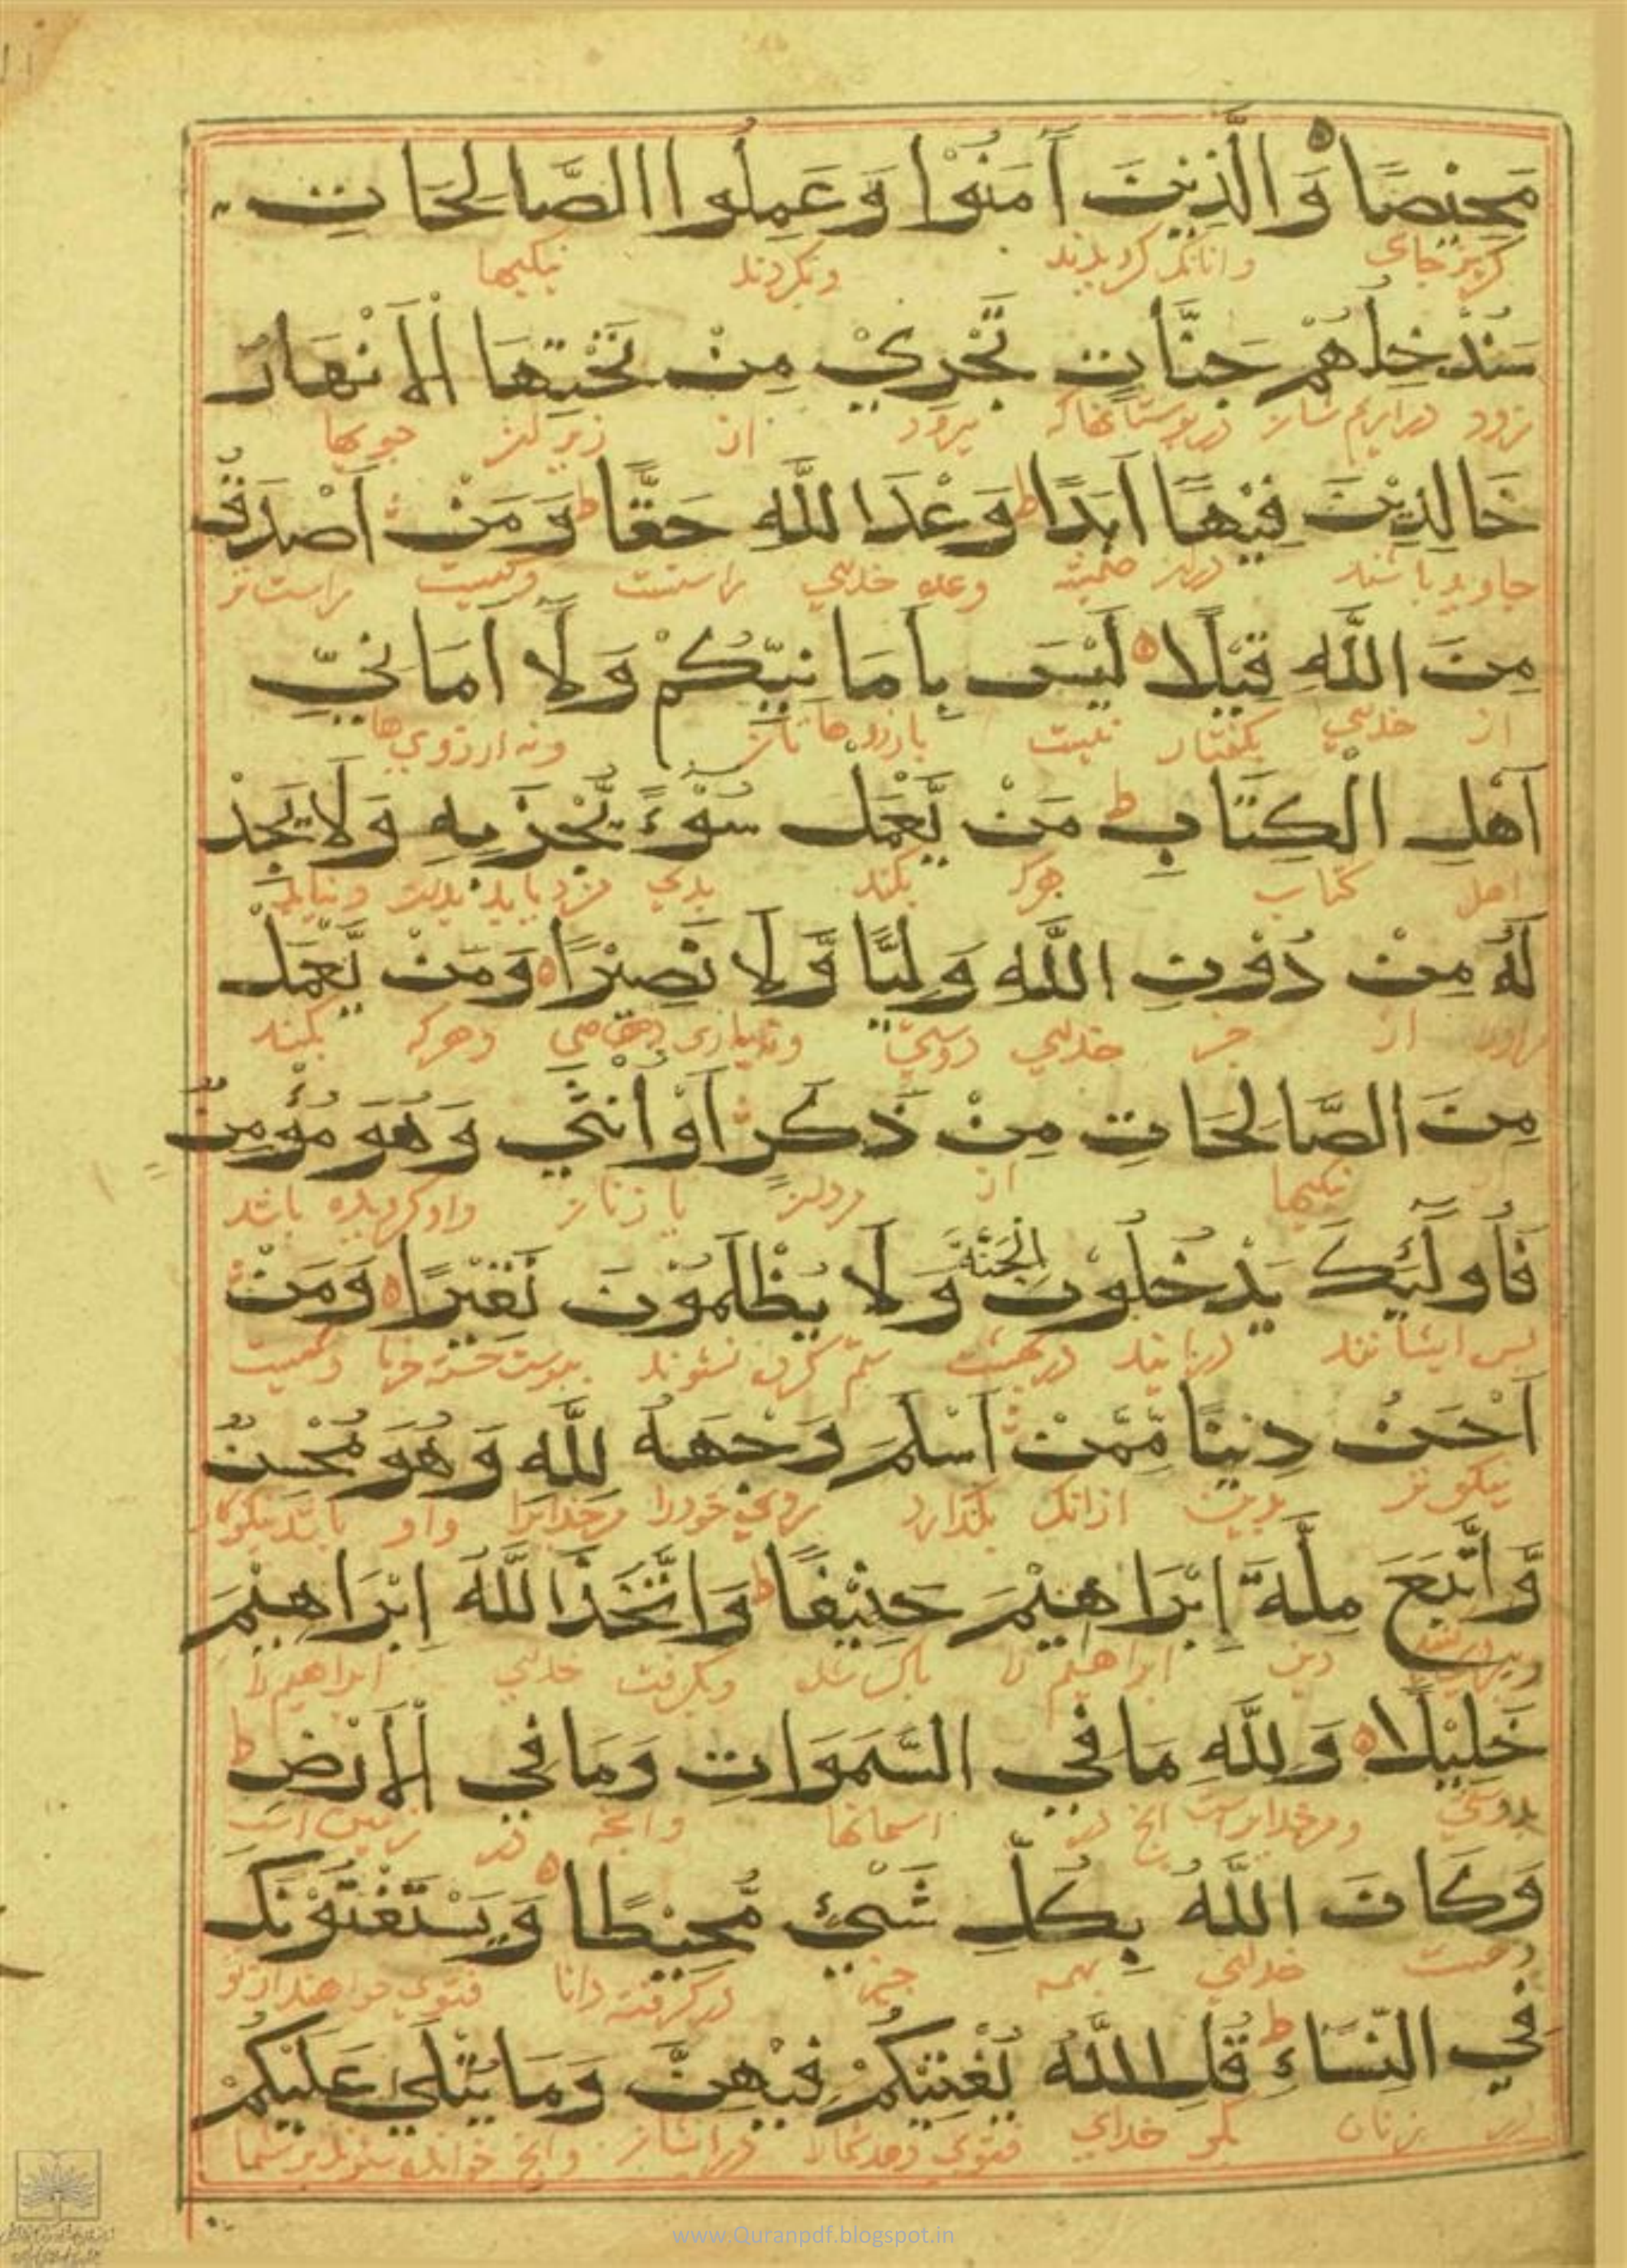 مَحِيْصًا وَالَّذِيْنَ آمَنُوْا وَعَمِلُوا الصَّالِحَاتِ
گریزجای وانانکه گرویدند وبکردند نیکیها
سَنُدْخِلُهُمْ جَنَّاتٍ تَجْرِيْ مِنْ تَحْتِهَا الْاَنْهَارُ
زود دراریم شان در بوستانهاکه میرود از زیر ان جویها
خَالِدِيْنَ فِيْهَا اَبَدًا ط وَعْدَ اللَّهِ حَقًّا ط وَمَنْ اَصْدَقُ
جاوید باشند دران همیشه وعده خدای راستست وکیست راست تر
مِنَ اللَّهِ قِيْلًا لَيْسَ بِاَمَانِيِّكُمْ وَلَا اَمَانِيِّ
از خدای بگفتار نیست بارزوها تان ونه ارزوی ها
اَهْلِ الْكِتَابِ ط مَنْ يَّعْمَلْ سُوْءً يُّجْزَ بِهِ وَلَا يَجِدْ
اهل کتاب هرکه بکند بدی ونیابد
لَهُ مِنْ دُوْنِ اللَّهِ وَلِيًّا وَّلَا نَصِيْرًا وَمَنْ يَّعْمَلْ
از جز خدای دوستی ونه یاری وهرکه بکند
مِنَ الصَّالِحَاتِ مِنْ ذَكَرٍ اَوْ اُنْثٰي وَهُوَ مُؤْمِنٌ
نیکیها از مردان یا زنان واو گرویده باشد
فَاُولَٓئِكَ يَدْخُلُوْنَ الْجَنَّةَ وَلَا يُظْلَمُوْنَ نَقِيْرًا وَمَنْ
پس ایشانند درایند دربهشت ستم کرده نشوند بپوست خسته خرما وکیست
اَحْسَنُ دِيْنًا مِّمَّنْ اَسْلَمَ وَجْهَهُ لِلَّهِ وَهُوَ مُحْسِنٌ
نیکوتر بدین ازانک بگذارد روی خودرا مرخدایرا واو باشد نیکوکار
وَّاتَّبَعَ مِلَّةَ اِبْرَاهِيْمَ حَنِيْفًا ط وَاتَّخَذَ اللَّهُ اِبْرَاهِيْمَ
دین ابراهیم را پاک شده وبگرفت خدای ابراهیم را
خَلِيْلًا وَلِلَّهِ مَا فِي السَّمَوَاتِ وَمَا فِي الْاَرْضِ ط
دوستی ومرخدایراست انچ در اسمانها وانچه در زمین است
وَكَانَ اللَّهُ بِكُلِّ شَيْءٍ مُّحِيْطًا وَيَسْتَفْتُوْنَكَ
وهست خدای بهمه چیز درگرفته دانا فتوی خواهند از تو
فِي النِّسَاءِ ط قُلِ اللَّهُ يُفْتِيْكُمْ فِيْهِنَّ وَمَا يُتْلٰي عَلَيْكُمْ
در زنان بگو خدای فتوی دهد شمارا درایشان وانچ خوانده شوند برشما
www.Quranpdf.blogspot.in